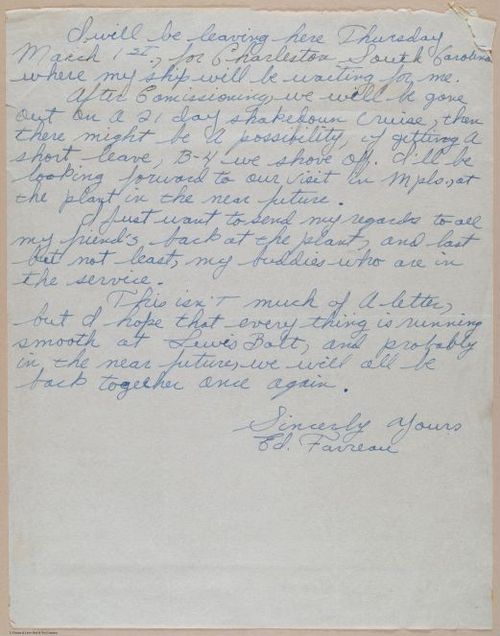 I will be leaving here Thursday
March 1st., for Charleston South Carolina
where my ship will be waiting for me.
After Comissioning, we will be gone
out on a 21 day shakedown cruise, then
there might be a possibility, of getting a
short leave, B-4 we shove off. I'll be
looking forward to our visit in Mpls., at
the plant in the near future.
I Just want to send my regards to all
my friend's, back at the plant, and last
but not least, my buddies who are in
the service.
This isn't much of A letter,
but I hope that every thing is running
smooth at Lewis Bolt, and probably
in the near future, we will all be
back together once again.
Sincerly Yours
Ed. Favreau